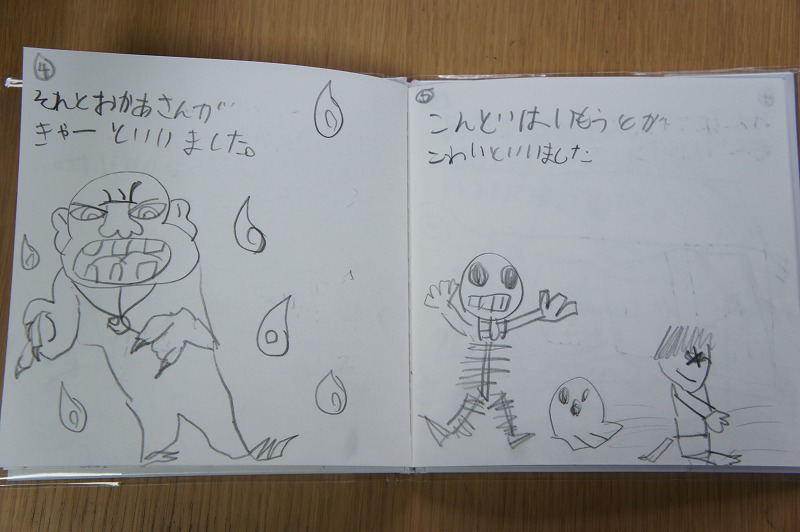 4
それとおかあさんが
きゃーといいました。
5
こんどはいもうとが
こわいといいました